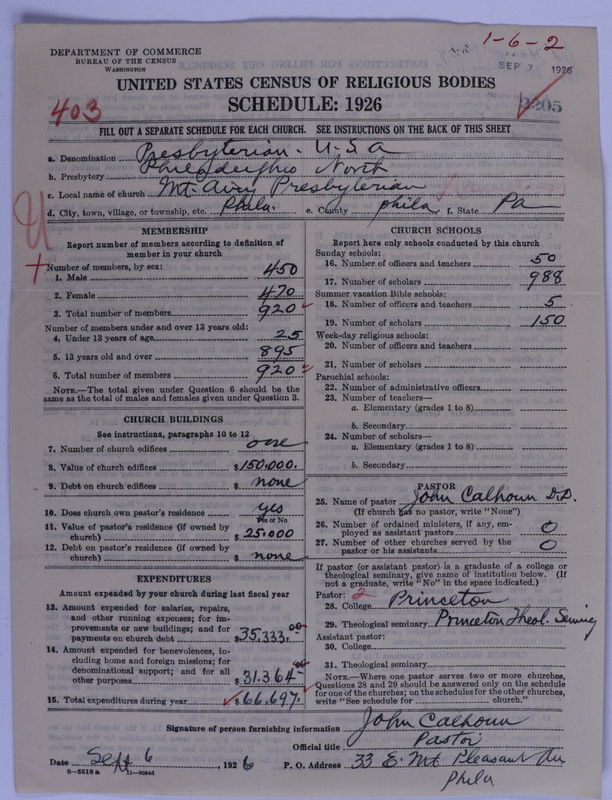 DEPARTMENT OF COMMERCE
BUREAU OF THE CENSUS
WASHINGTON
1-6-2
SEP 7 1926
UNITED STATES CENSUS OF RELIGIOUS BODIES
SCHEDULE: 1926
403
3205
FILL OUT A SEPARATE SCHEDULE FOR EACH CHURCH. SEE INSTRUCTIONS ON THE BACK OF THIS SHEET
a. Denomination Presbyterian - U-S a
b. Presbytery Philadelphia North
c. Local name of church Mt. Airy Presbyterian
d. City, town, village, or township, etc. Phila. e. County phila, f. State Pa
MEMBERSHIP
Report number of members according to definition of
member in your church
Number of members, by sex:
1. Male 450
2. Female 470
3. Total number of members 920
Number of members under and over 13 years old:
4. Under 13 years of age 25
5. 13 years old and over 895
6. Total number of members 920
NOTE.—The total given under Question 6 should be
the same as the total of males and females given under Question 3.
CHURCH BUILDINGS
See instructions, paragraphs 10 to 12
7. Number of church edifices one
8. Value of church edifices $150.000.
9. Debt on church edifices $ none
10. Does church own pastor's residence yes
Yes or No
11. Value of pastor's residence (if owned by
church) $25.000
12. Debt on pastor's residence (if owned by
church) $ none
EXPENDITURES
Amount expended by your church during last fiscal year
13. Amount expended for salaries, repairs,
and other running expenses; for im-
provements or new buildings; and for
payments on church debt $35.333.00
14. Amount expended for benevolences, in-
cluding home and foreign missions; for
denominational support; and for all
other purposes $31.364
15. Total expenditures during year $66.697.
CHURCH SCHOOLS
Report here only schools conducted by this church
Sunday schools:
16. Number of officers and teachers 50
17. Number of scholars 988
Summer vacation Bible schools:
18. Number of officers and teachers 5
19. Number of scholars 150
Week-day religious schools:
20. Number of officers and teachers
21. Number of scholars
Parochial schools:
22. Number of administrative officers
23. Number of teachers—
a. Elementary (grades 1 to 8)
b. Secondary
24. Number of scholars—
a. Elementary (grades 1 to 8)
b. Secondary
PASTOR
25. Name of pastor John Calhoun D.D.
(If church has no pastor, write "None")
26. Number of ordained ministers, if any, em-
ployed as assistant pastors 0
27. Number of other churches served by the
pastor or his assistants 0
If pastor (or assistant pastor) is a graduate of a college or
theological seminary, give name of institution below. (If
not a graduate, write "No" in the space indicated.)
Pastor: 2
28. College Princeton
29. Theological seminary Princeton Theol. Seminary
Assistant pastor:
30. College
31. Theological seminary
NOTE.—Where one pastor serves two or more churches,
Questions 28 and 29 should be answered only on the schedule
for one of the churches; on the schedules for the other churches,
write "See schedule for church."
Signature of person furnishing information John Calhoun
Official title Pastor
Date Sept 6, 1926 P. O. Address 33 E. Mt Pleasant Av
Phila
8-5518 a